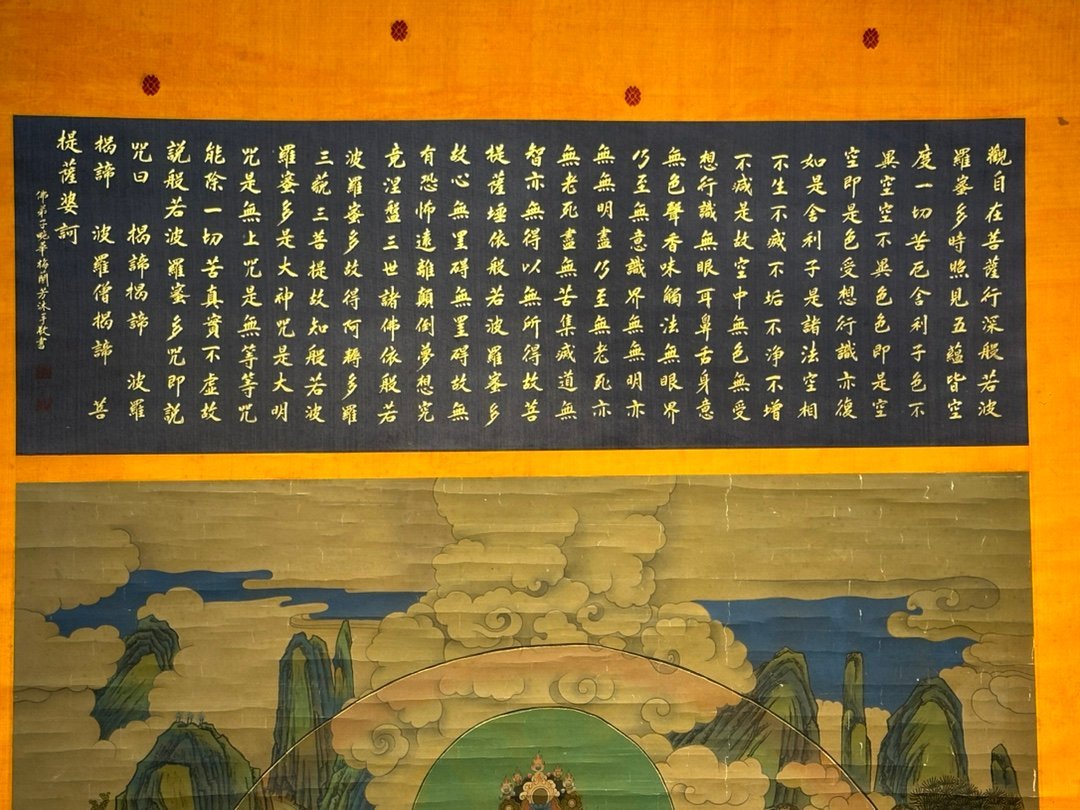 觀自在菩薩行深般若波
羅蜜多時照見五蘊皆空
度一切苦厄舍利子色不
異空空不異色色即是空
空即是色受想行識亦復
如是舍利子是諸法空相
不生不滅不垢不淨不增
不減是故空中無色無受
想行識無眼耳鼻舌身意
無色聲香味觸法無眼界
乃至無意識界無無明亦
無無明盡乃至無老死亦
無老死盡無苦集滅道無
智亦無得以無所得故菩
提薩埵依般若波羅蜜多
故心無罣碍無罣碍故無
有恐怖遠離顛倒夢想究
竟涅盤三世諸佛依般若
波羅蜜多故得阿耨多羅
三藐三菩提故知般若波
羅蜜多是大神咒是大明
咒是無上咒是無等等咒
能除一切苦真實不虛故
說般若波羅蜜多咒即說
咒曰 揭諦揭諦 波羅
揭諦 波羅僧揭諦 菩
提薩婆訶
佛弟子畹華梅蘭芳沐手敬書